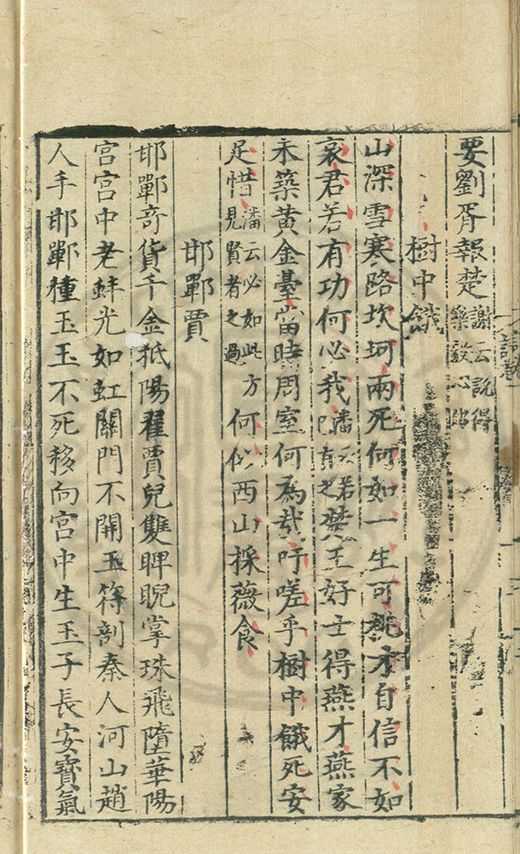 要劉胥報楚謝云説得樂毅心
樹中餓
山深雪寒路坎坷兩死何如一生可桃才自信不如
哀君若有功何必我潘云若之楚王好士得燕才燕家
未築黄金臺當時周室何為哉吁嗟乎樹中餓死安
足惜潘云必如此方見賢者之過何似西山採薇食
邯鄲賈
邯鄲奇貨千金抵陽翟賈兒雙睥睨掌珠飛墮華陽
宮宮中老蚌光如虹關門不開玉符剖秦人河山趙
人手邯鄲種玉玉不死移向宮中生玉子長安寶氣